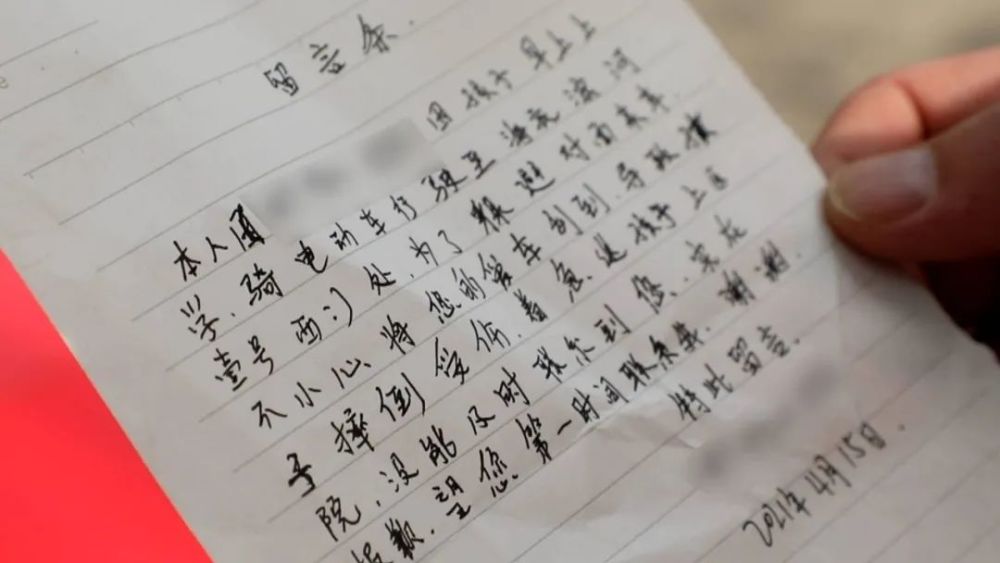 留言条.
本人因 因孩子早上上
学.骑电动车行驶至 滨河
壹号西门处.为了躲避对面来车
不小心将您的爱车刮到.导致孩
子摔倒受伤.着急送孩子上医
院.没能及时联系到您.实在
抱歉.望您第一时间联系我.谢谢.
特此留言.
2021年4月15日.